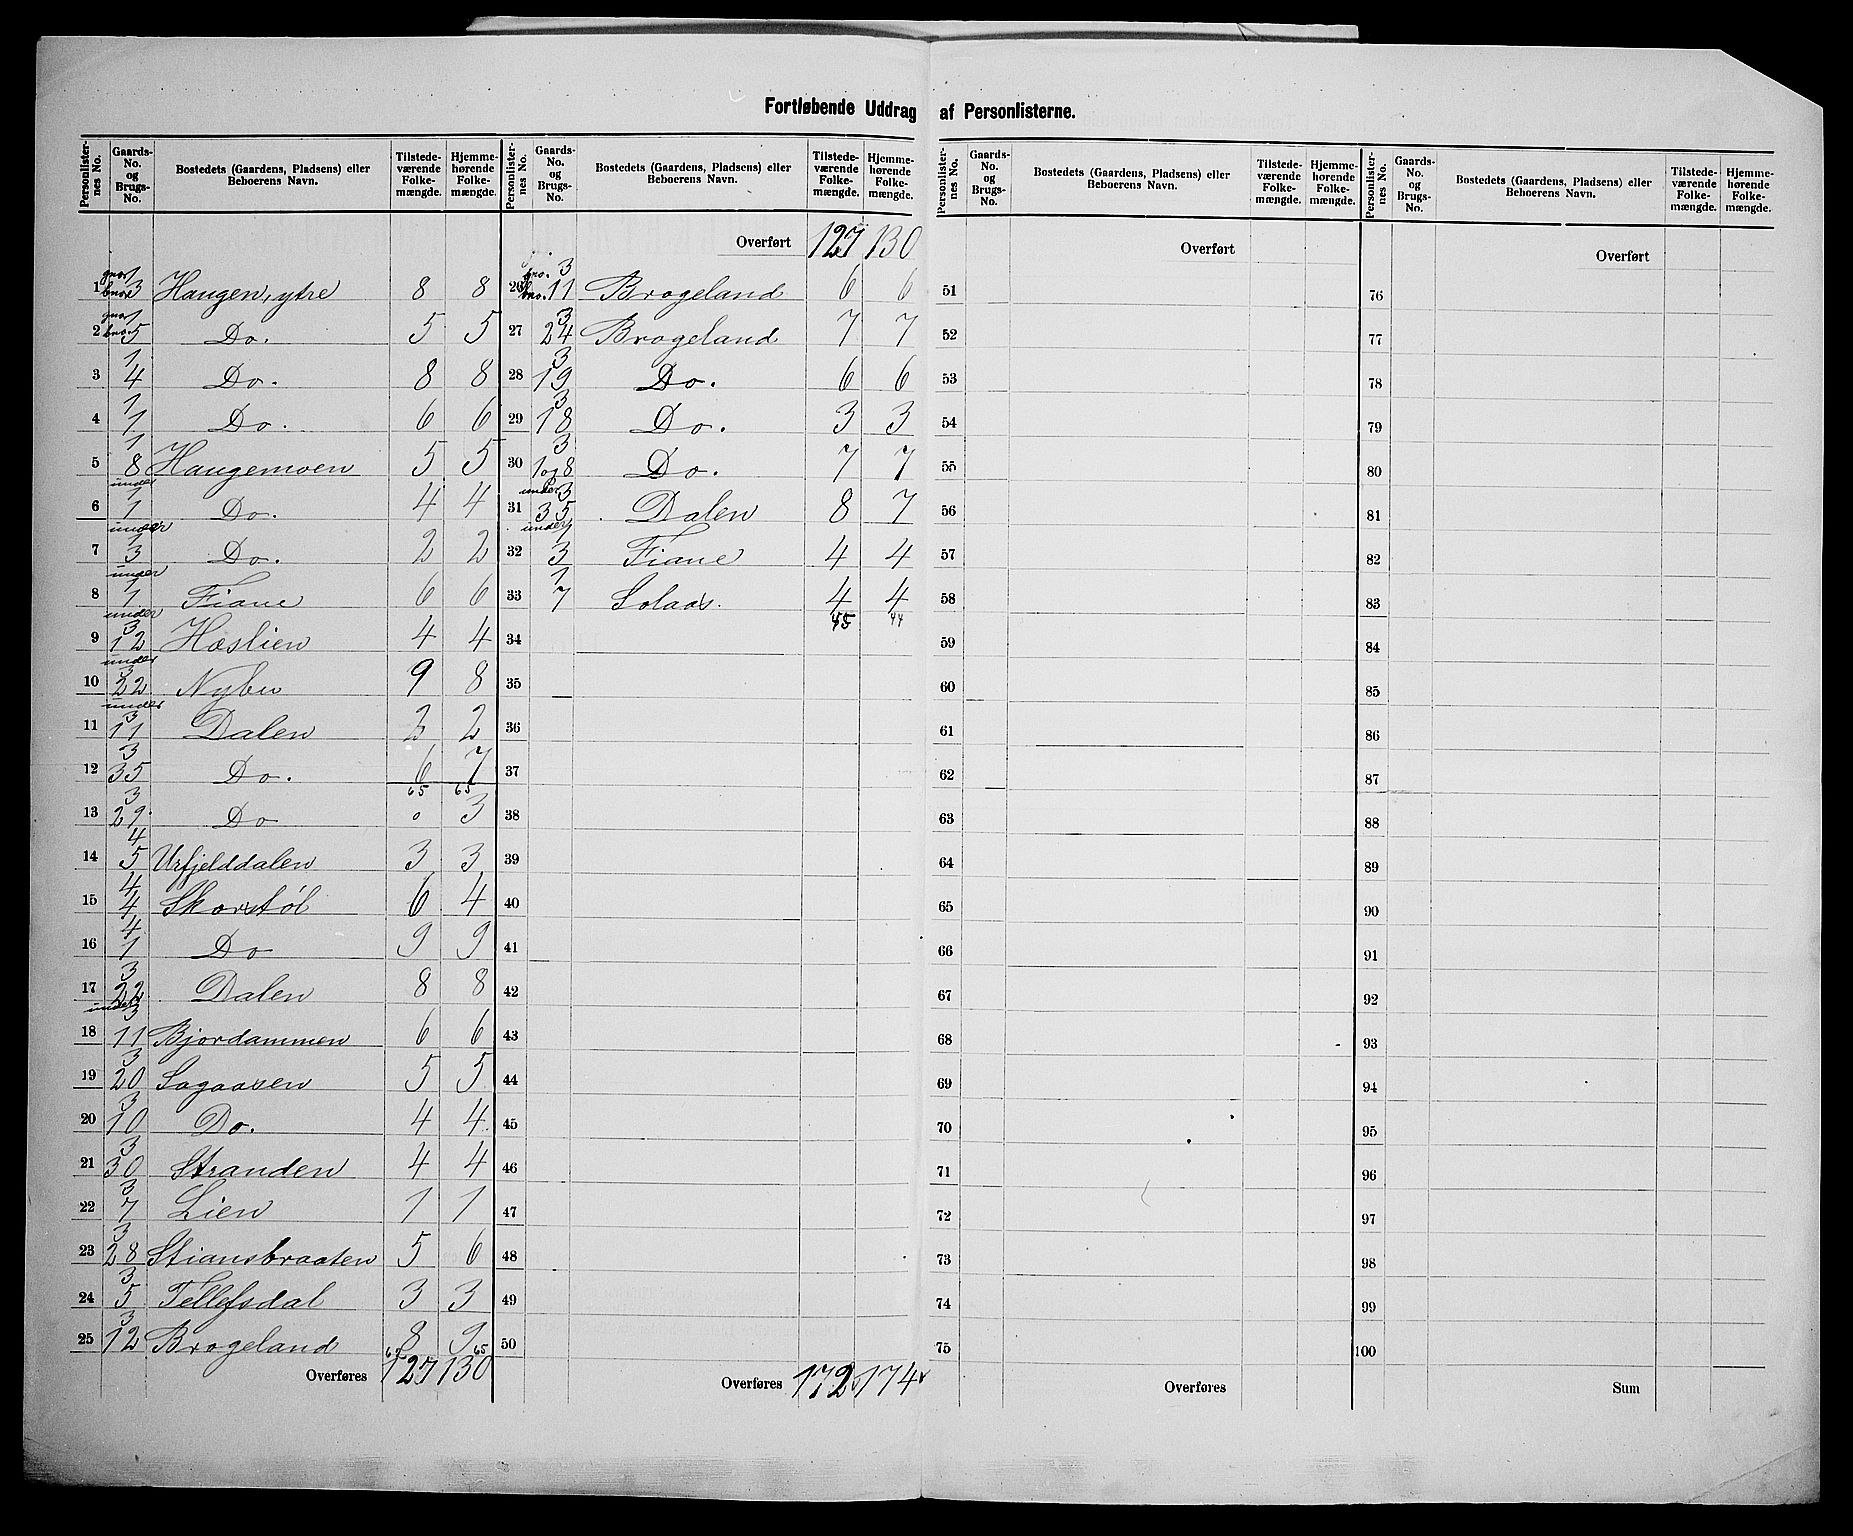 Fortløbende Uddrag af Personlisterne.
Personlister-nes No. Gaards-No. og Brugs-No. Bostedets (Gaardens, Pladsens) eller Beboerens Navn. Tilstede-værende Folke-mængde. Hjemme-hørende Folke-mængde.
1 gno. 1 bno. 3 Haugen, ytre 8 8
2 gno. 1 bno. 5 Do. 5 5
3 1 4 Do. 8 8
4 1 1 Do. 6 6
5 1 8 Haugemoen 5 5
6 under 1 1 Do. 4 4
7 under 1 3 Do. 2 2
8 under 1 1 Fiane 6 6
9 under 3 12 Hæslien 4 4
10 under 3 22 Nybu 9 8
11 under 3 11 Dalen 2 2
12 3 35 Do. 6 7
65 65
13 3 29 Do 0 3
14 4 5 Urfjelddalen 3 3
15 4 4 Skorstøl 6 4
16 4 1 Do 9 9
17 3 22 Dalen 8 8
18 under 3 11 Bjordammen 6 6
19 3 20 Sagaasen 5 5
20 3 10 Do. 4 4
21 3 30 Stranden 4 4
22 3 7 Lien 1 1
23 3 28 Stiansbraaten 5 6
24 3 5 Tellefsdal 3 3
25 3 12 Brogeland 8 9
62 65
Overføres 127 130
Personlister-nes No. Gaards-No. og Brugs-No. Bostedets (Gaardens, Pladsens) eller Beboerens Navn. Tilstede-værende Folke-mængde. Hjemme-hørende Folke-mængde.
Overført 127 130
26 gno. 3 bno. 11 Brogeland 6 6
27 3 24 Brogeland 7 7
28 3 19 Do. 6 6
29 3 18 Do. 3 3
30 3 1 og 8 Do. 7 7
31 under 3 35 Dalen 8 7
32 under 1 3 Fiane 4 4
33 1 7 Solaas. 4 4
45 44
34
35
36
37
38
39
40
41
42
43
44
45
46
47
48
49
50
Overføres 172 174
Personlister-nes No. Gaards-No. og Brugs-No. Bostedets (Gaardens, Pladsens) eller Beboerens Navn. Tilstede-værende Folke-mængde. Hjemme-hørende Folke-mængde.
Overført
51
52
53
54
55
56
57
58
59
60
61
62
63
64
65
66
67
68
69
70
71
72
73
74
75
Overføres
Personlister-nes No. Gaards-No. og Brugs-No. Bostedets (Gaardens, Pladsens) eller Beboerens Navn. Tilstede-værende Folke-mængde. Hjemme-hørende Folke-mængde.
Overført
76
77
78
79
80
81
82
83
84
85
86
87
88
89
90
91
92
93
94
95
96
97
98
99
100
Sum